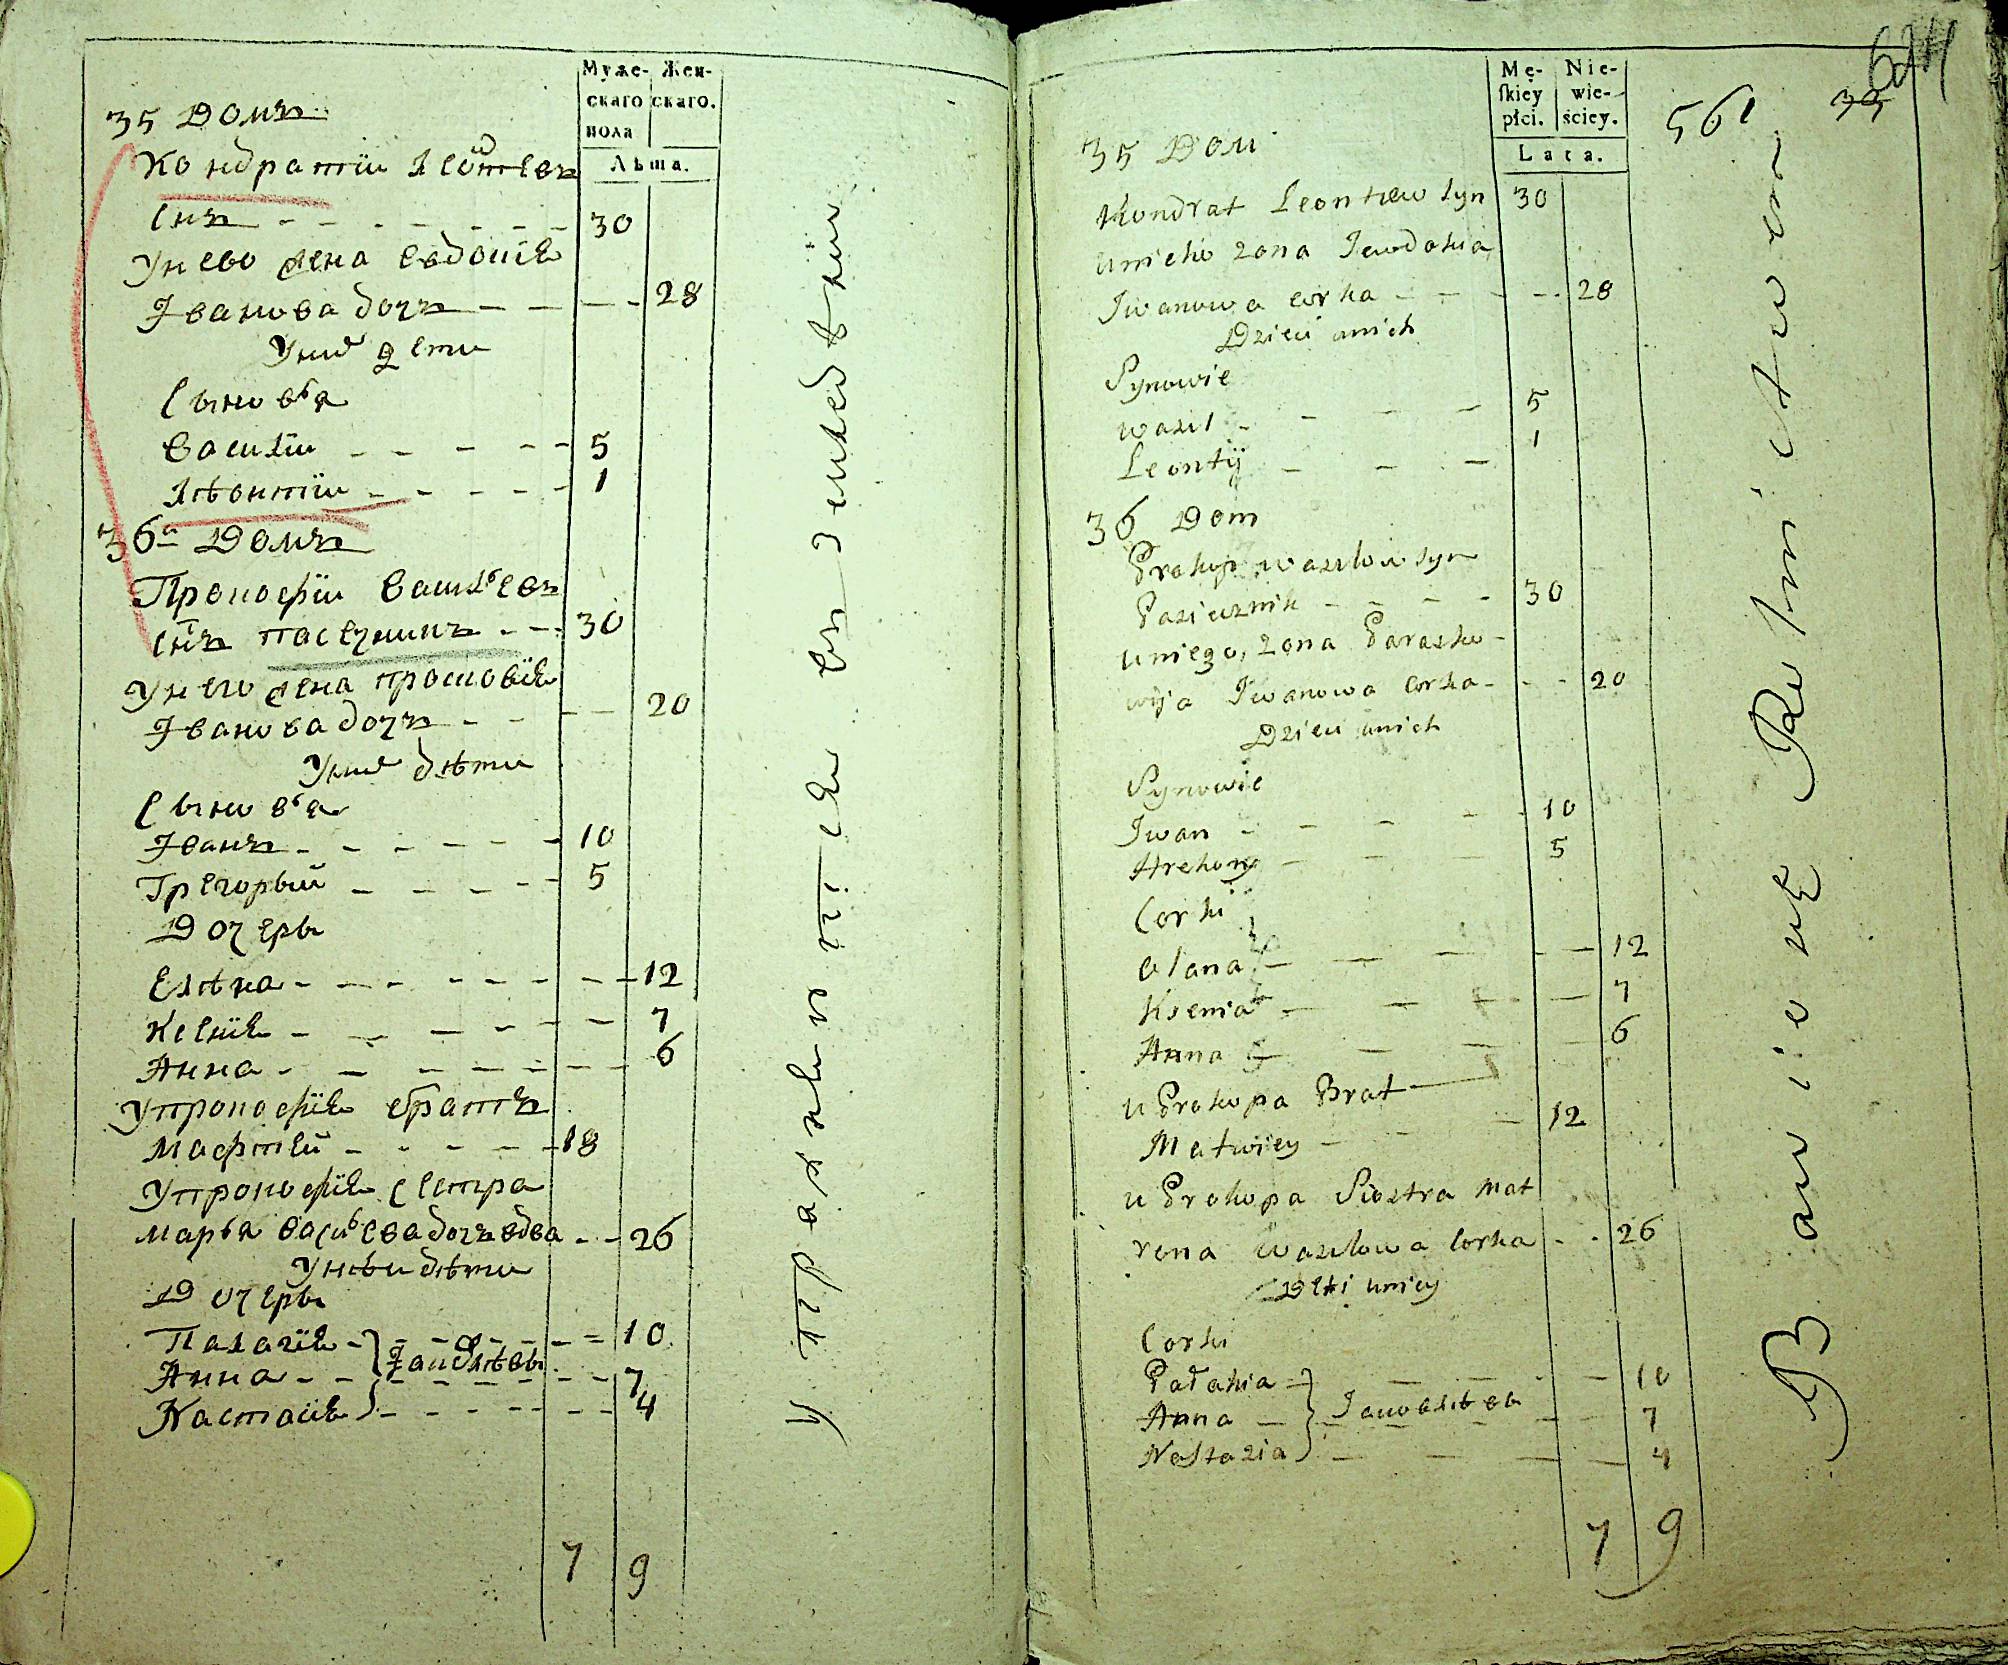 Муже-
скаго
пола
Жен-
скаго.
Лѣта.
35 Домъ
Кондратій Леонтіевъ
Снъ - - - - - - 30
У нево жена Евдокія
Іванова дочъ - - - - 28
У ниⷯ дети
Сыновья
Василій - - - - - 5
Лѣонтій - - - - - 1
36й Домъ
Прокофій Васильевъ
Снъ пасечникъ - - 30
У него жена Просковія
Іванова дочъ - - - - 20
У ниⷯ дѣти
Сыновья
Іванъ - - - - - - 10
Грегорый - - - - - 5
Дочеры
Елѣна - - - - - - - 12
Ксенія - - - - - - 7
Анна - - - - - - - - 6
У Прокофія братъ
Мафтей - - - - - 18
У Прокофія сестра
Марья Васильева дочъ вдва - - 26
У нѣй дѣти
Дочеры
Палагія - - - - - - = 10
Анна - - - - - - - - 7
Настасія - - - - - - - 4
7 9
Mę-
ſkiey
płci.
Nie-
wie-
ściey.
Lata.
561
35
35 Dom
Kondrat Leontiew Syn 30
u nieho żona Jewdokia
Iwanowa corka - - - - 28
Dzieci u nich
Synowie
Wasil - - - - 5
Leontij - - - 1
36 Dom
Prokop Wasilow Syn
Pasiecznik - - - - 30
u niego żona Parasko-
wija Iwanowa Corka - - - 20
Dzieci u nich
Synowie
Iwan - - - - - 10
Hrehory - - - 5
Corki
Olana - - - - - 12
Ksenia - - - - - 7
Anna - - - - 6
u Prokopa Brat
Matwiey - - - 12
u Prokopa Siostra Mat
rona Wasilowa Corka - - 26
Dzieci u niey
Corki
Pałahia - - - - - 10
Anna - - - - - 7
Nastazia - - - - 4
7 9